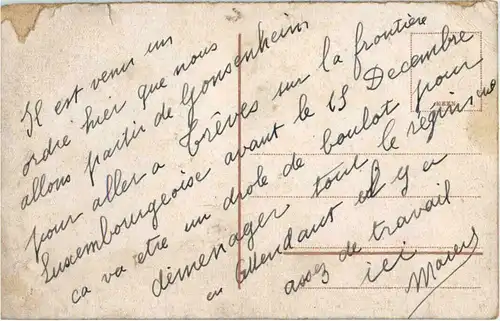 Il est venu un
ordre hier que nous
allons partir de Gonsenheim
pour aller a Trêves sur la frontière
Luxembourgeoise avant le 15 Decembre
ca va etre un drole de boulot pour
démenager tout le regiment
en attendant il y a
assez de travail
ici